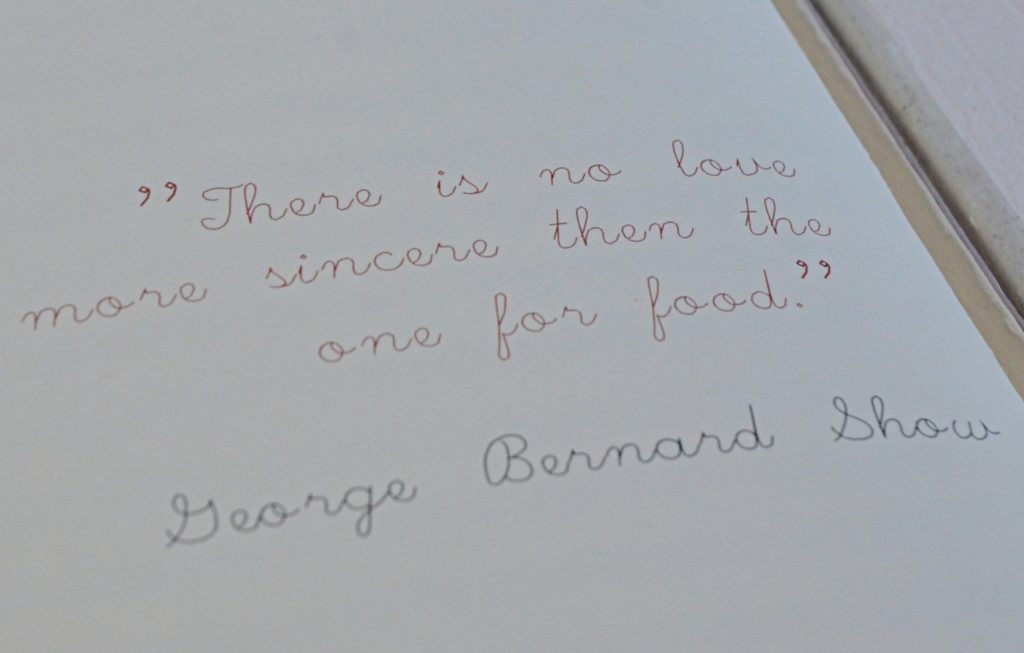 ”There is no love
more sincere then the
one for food.”
George Bernard Show